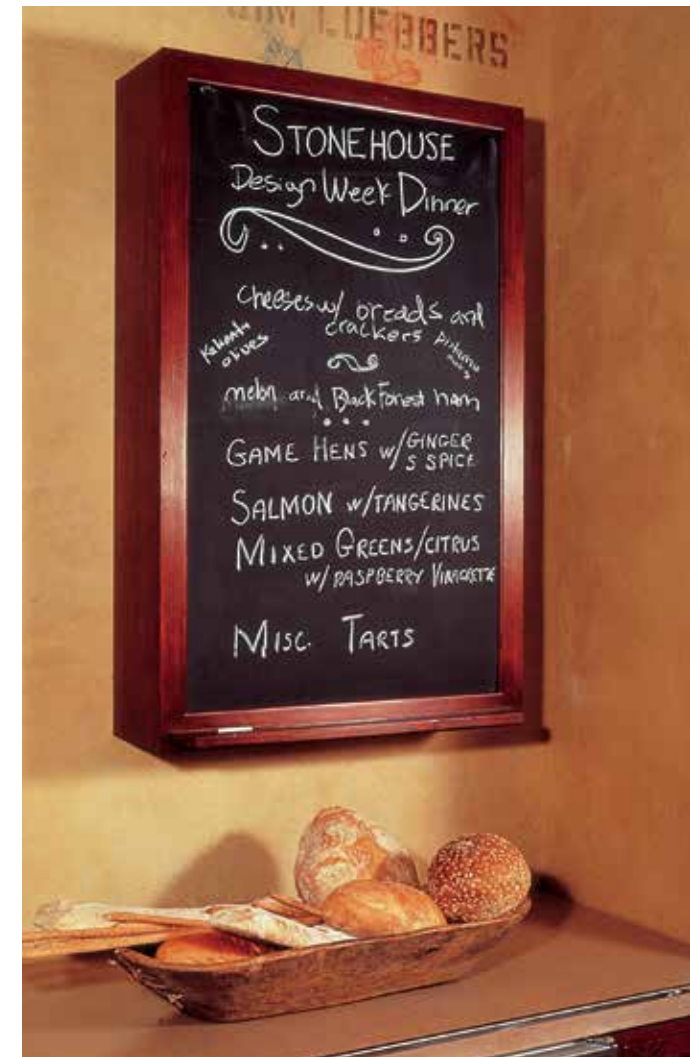 JIM LUEBBERS
STONEHOUSE
Design Week Dinner
cheeses w/ breads and
crackers
olives
melon and Black Forest ham
GAME HENS w/GINGER
S SPICE
SALMON w/TANGERINES
MIXED GREENS/CITRUS
w/ RASPBERRY VINAGRETTE
MISC. TARTS